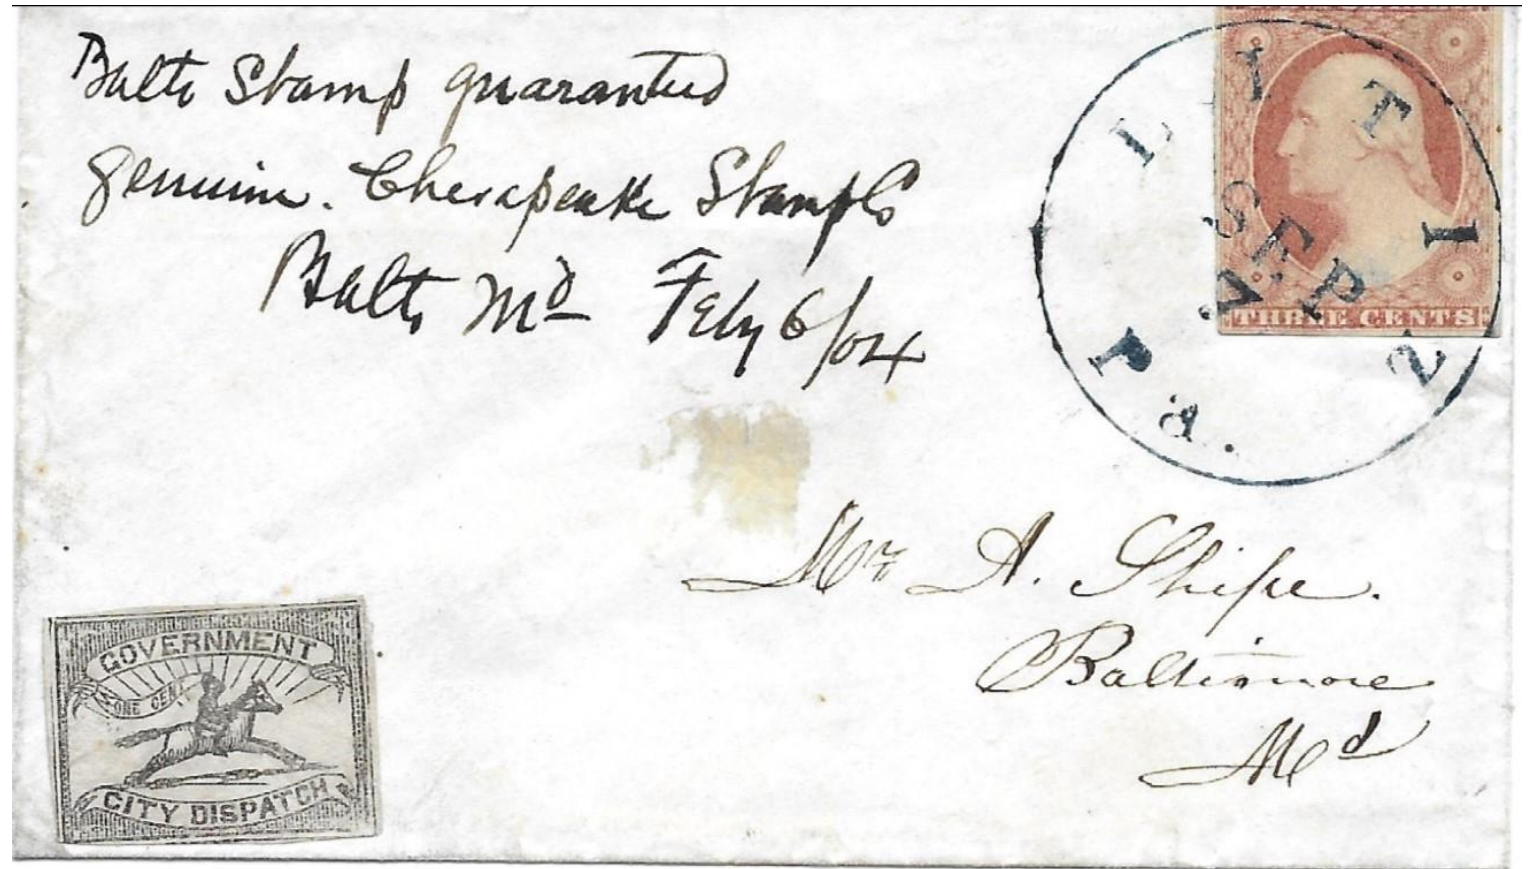 Balto Stamp guaranteed
genuine. Chesapeake Stamp Co
Balto Md Feby 6/04
SEP
2
Pa.
THREE CENTS
Mr A. Shipe.
Baltimore
Md
GOVERNMENT
ONE CENT
CITY DISPATCH